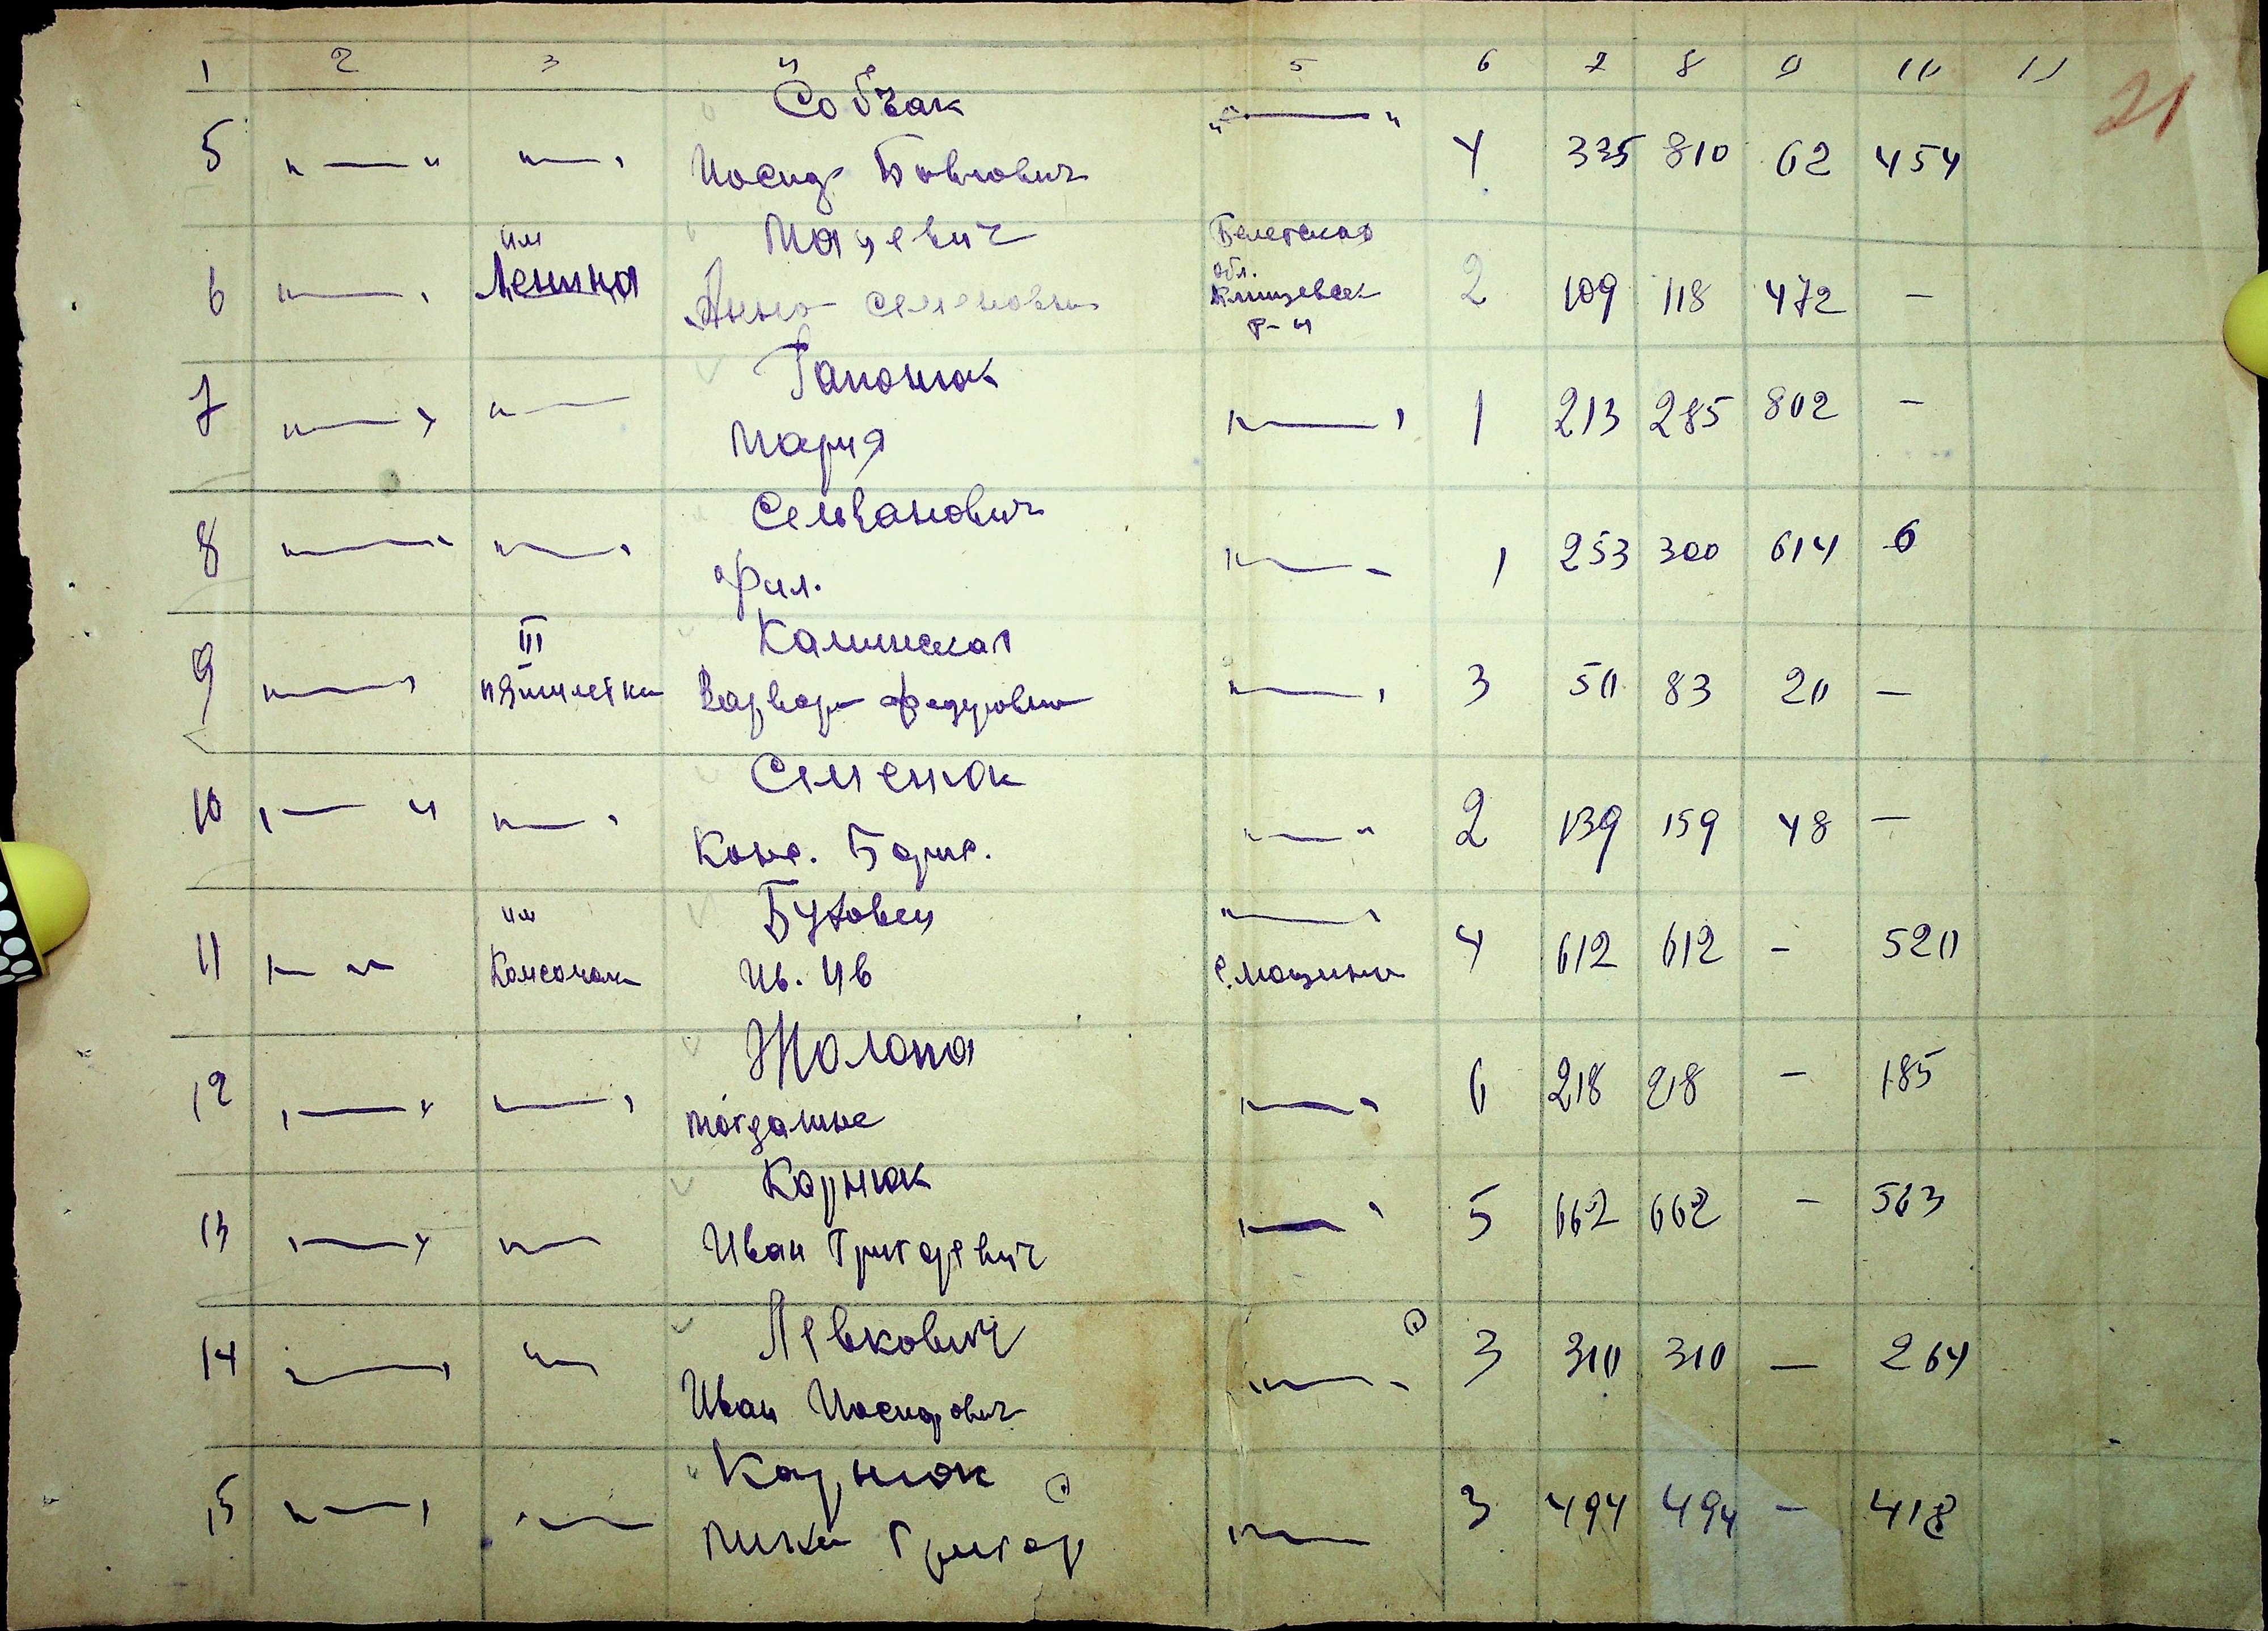 1 2 3 4 5 6 7 8 9 10 11
21
Собчак
5 " — " " — " " — " 4 335 810 62 454
Иосиф
им Мацевич
6 " — " Ленина 2 109 118 472 —
Анна Семеновна
обл.
р-н
Гапонюк
7 " — " " — " " — " 1 213 285 802 —
Мария
8 " — " " — " " — " 1 253 300 614 6
Фил.
III Каминская
9 " — " пятилетки Варвара Федоровна " — " 3 50 83 20 —
Семенюк
10 " — " " — " " — " 2 139 159 48 —
Конс. Борис.
им Буховец " — "
11 " — " Ив. Ив 4 612 612 — 520
Жолопа
12 " — " " — " " — " 6 218 218 — 185
Корнюк
13 " — " " — " " — " 5 662 662 — 563
Иван Григоревич
Левкович
14 " — " " — " " — " 3 310 310 — 264
Иван Иосифович
Корнюк
15 " — " " — " " — " 3 494 494 — 418
Григор